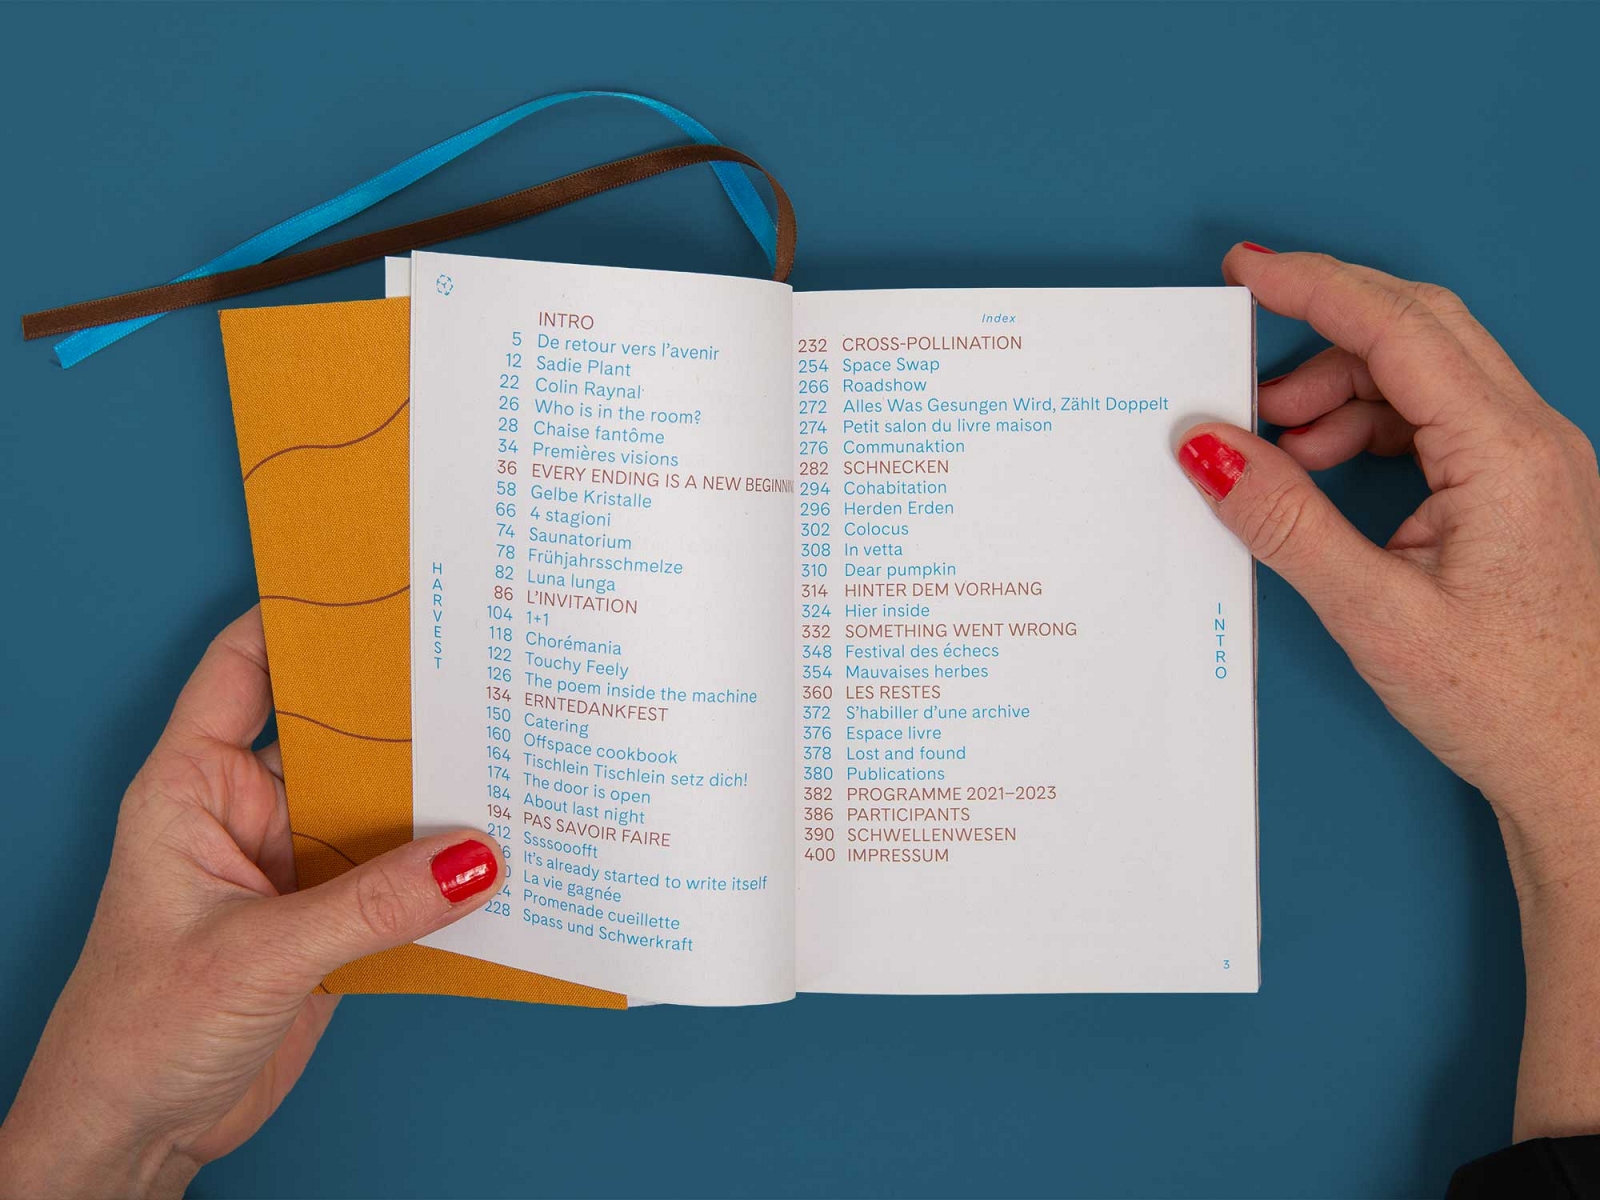 INTRO
5 De retour vers l'avenir
12 Sadie Plant
22 Colin Raynal
26 Who is in the room?
28 Chaise fantôme
34 Premières visions
36 EVERY ENDING IS A NEW
58 Gelbe Kristalle
66 4 stagioni
74 Saunatorium
78 Frühjahrsschmelze
82 Luna lunga
86 L'INVITATION
104 1+1
118 Chorémania
122 Touchy Feely
126 The poem inside the machine
134 ERNTEDANKFEST
150 Catering
160 Offspace cookbook
164 Tischlein Tischlein setz dich!
174 The door is open
184 About last night
194 PAS SAVOIR FAIRE
212 Sssssooofft
It's already started to write itself
La vie gagnée
Promenade cueillette
228 Spass und Schwerkraft
HARVEST
Index
232 CROSS-POLLINATION
254 Space Swap
266 Roadshow
272 Alles Was Gesungen Wird, Zählt Doppelt
274 Petit salon du livre maison
276 Communaktion
282 SCHNECKEN
294 Cohabitation
296 Herden Erden
302 Colocus
308 In vetta
310 Dear pumpkin
314 HINTER DEM VORHANG
324 Hier inside
332 SOMETHING WENT WRONG
348 Festival des échecs
354 Mauvaises herbes
360 LES RESTES
372 S'habiller d'une archive
376 Espace livre
378 Lost and found
380 Publications
382 PROGRAMME 2021–2023
386 PARTICIPANTS
390 SCHWELLENWESEN
400 IMPRESSUM
INTRO
3